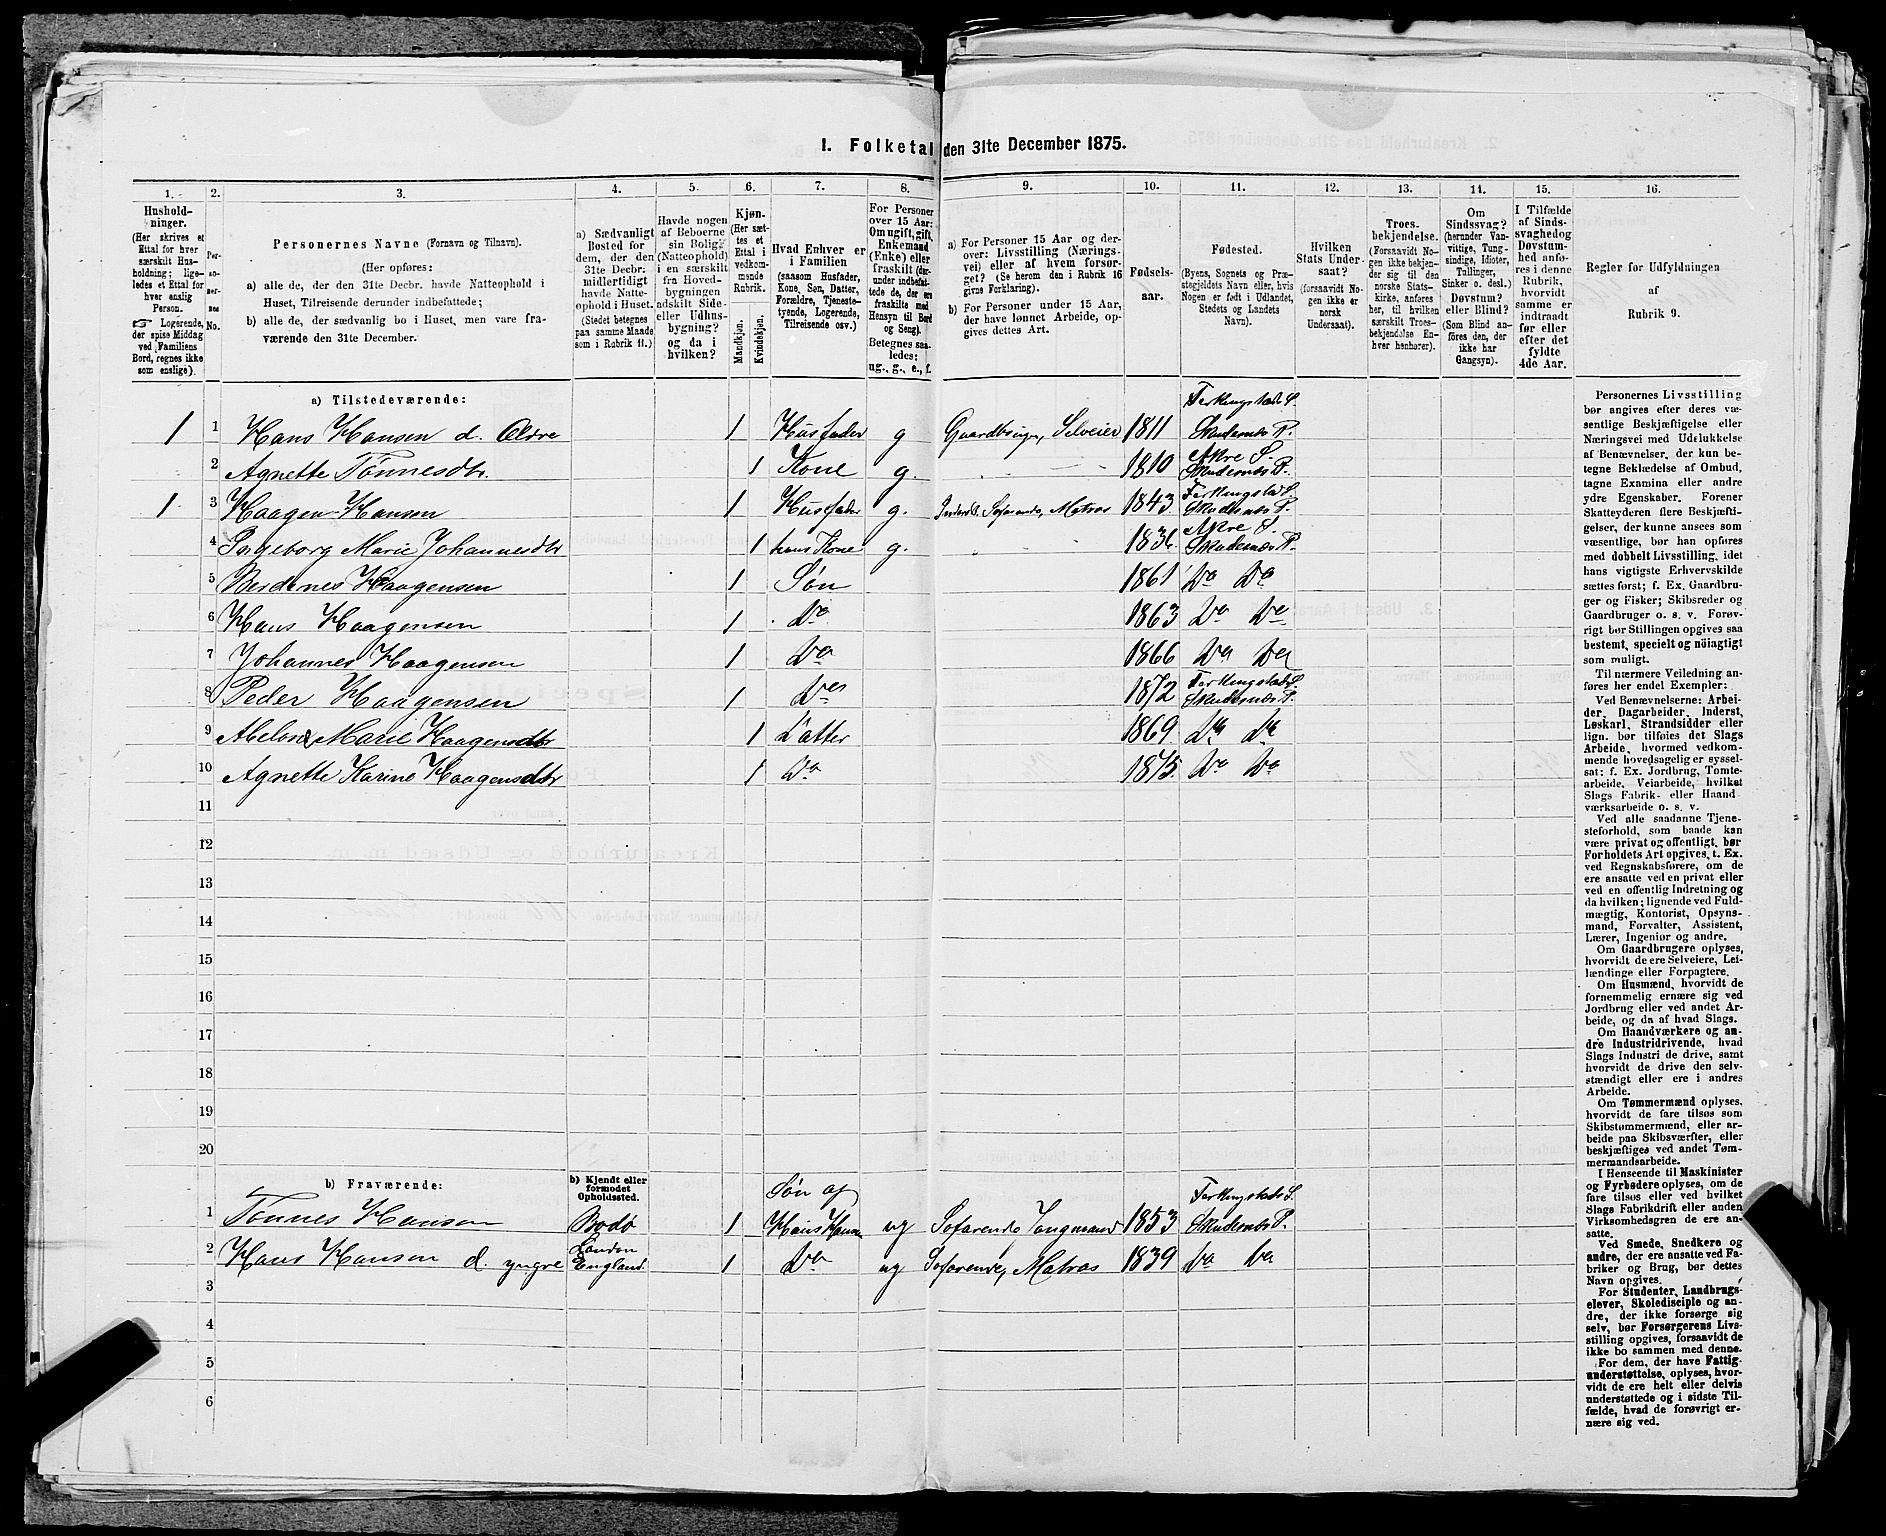 1. Folketal den 31te December 1875.
1. 2. 3. 4. 5. 6. 7. 8. 9. 10. 11. 12. 13. 14. 15. 16.
Hushold-
ninger.
(Her skrives et
Ettal for hver
særskilt Hus-
holdning; lige-
ledes et Ettal for
hver enslig
Person.
☞ Logerende,
der spise Middag
ved Familiens
Bord, regnes ikke
som enslige).
Per-
so-
ner-
nes
No.
Personernes Navne (Fornavn og Tilnavn).
(Her opføres:
a) alle de, der den 31te Decbr. havde Natteophold i
Huset, Tilreisende derunder indbefattede;
b) alle de, der sædvanlig bo i Huset, men vare fra-
værende den 31te December.
a) Sædvanligt
Bosted for
dem, der den
31te Decbr.
midlertidigt
havde Natte-
ophold i Huset.
(Stedet betegnes
paa samme Maade
som i Rubrik 11.)
Havde nogen
af Beboerne
sin Bolig
(Natteophold)
i en særskilt
fra Hoved-
bygningen
adskilt Side-
eller Udhus-
bygning?
og da i
hvilken?
Kjøn.
(Her sæt-
tes et
Ettal i
vedkom-
mende
Rubrik.
Mandkjøn.
Kvindekjøn.
Hvad Enhver er
i Familien
(saasom Husfader,
Kone, Søn, Datter,
Forældre, Tjeneste-
tyende, Logerende,
Tilreisende osv.)
For Personer
over 15 Aar:
Om ugift, gift,
Enkemand
(Enke) eller
fraskilt (der-
under indbefat-
tede de, der ere
fraskilte med
Hensyn til Bord
og Seng).
Betegnes saa-
ledes:
ug., g., e., f.
a) For Personer 15 Aar og der-
over: Livsstilling (Nærings-
vei) eller af hvem forsør-
get? (Se herom den i Rubrik 16
givne Forklaring).
b) For Personer under 15 Aar,
der have lønnet Arbeide, op-
gives dettes Art.
Fødsels-
aar.
Fødested.
(Byens, Sognets og Præ-
stegjeldets Navn eller, hvis
Nogen er født i Udlandet,
Stedets og Landets
Navn).
Hvilken
Stats Under-
saat?
(forsaavidt No-
gen ikke er
norsk
Undersaat).
Troes-
bekjendelse.
(Forsaavidt No-
gen ikke bekjen-
der sig til den
norske Stats-
kirke, anføres
her, til hvilken
særskilt Troes-
bekjendelse En-
hver henhører).
Om
Sindssvag?
(herunder Van-
vittige, Tung-
sindige, Idioter,
Tullinger,
Sinker o. desl.)
Døvstum?
eller Blind?
(Som Blind an-
føres den, der
ikke har
Gangsyn).
I Tilfælde
af Sinds-
svaghed og
Døvstum-
hed anfø-
res i denne
Rubrik,
hvorvidt
samme er
indtraadt
før eller
efter det
fyldte
4de Aar.
Regler for Udfyldningen
af
Rubrik 9.
a) Tilstedeværende:
1 1 Hans Hansen d. Ældre 1 Husfader g Gaardbruger, Selveier 1811 Ferkingstads S. Skudesnæs P.
2 Agnette Tønnesdtr. 1 Kone g. 1810 Akre S. Skudesnæs P.
1 3 Haagen Hansen 1 Husfader g. Inderst. Søfarende, Matros 1843 Ferkingstad S. Skudesnæs P.
4 Ingeborg Marie Johannesdtr 1 hans Kone g. 1836 Akre S. Skudesnæs P.
5 Haagensen 1 Søn 1861 Do Do
6 Hans Haagensen 1 Do 1863 Do Do
7 Johannes Haagensen 1 Do 1866 Do Do
8 Peder Haagensen 1 Do 1872 Ferkingstads S. Skudesnæs P.
9 Marie Haagensdtr 1 Datter 1869 Do Do
10 Agnette Karine Haagensdtr 1 Do 1875 Do Do
11
12
13
14
15
16
17
18
19
20
b) Fraværende:
b) Kjendt eller
formodet
Opholdssted.
1 Tønnes Hansen Bodø 1 Søn af Hans Hansen ug Søfarende Jungmand 1853 Ferkingstads S. Skudesnæs P.
2 Hans Hansen d. yngre London England 1 Do ug Søfarende, Matros 1839 Do Do
3
4
5
6
Personernes Livsstilling
bør angives efter deres væ-
sentlige Beskjæftigelse eller
Næringsvei med Udelukkelse
af Benævnelser, der kun be-
tegne Beklædelse af Ombud,
tagne Examina eller andre
ydre Egenskaber. Forener
Skatteyderen flere Beskjæfti-
gelser, der kunne ansees som
væsentlige, bør han opføres
med dobbelt Livsstilling, idet
hans vigtigste Erhvervskilde
sættes først; f. Ex. Gaardbru-
ger og Fisker; Skibsreder og
Gaardbruger o. s. v. Forøv-
rigt bør Stillingen opgives saa
bestemt, specielt og nöiagtigt
som muligt.
Til nærmere Veiledning an-
føres her endel Exempler:
Ved Benævnelserne: Arbei-
der, Dagarbeider, Inderst,
Løskarl, Strandsidder eller
lign. bør tilføies det Slags
Arbeide, hvormed vedkom-
mende hovedsagelig er syssel-
sat; f. Ex. Jordbrug, Tomte-
arbeide, Veiarbeide, hvilket
Slags Fabrik- eller Haand-
værksarbeide o. s. v.
Ved alle saadanne Tjene-
steforhold, som baade kan
være privat og offentligt, bør
Forholdets Art opgives, t. Ex.
ved Regnskabsførere, om de
ere ansatte ved en privat eller
ved en offentlig Indretning og
da hvilken; lignende ved Fuld-
mægtig, Kontorist, Opsyns-
mand, Forvalter, Assistent,
Lærer, Ingeniør og andre.
Om Gaardbrugere oplyses,
hvorvidt de ere Selveiere, Lei-
lændinge eller Forpagtere.
Om Husmænd, hvorvidt de
fornemmelig ernære sig ved
Jordbrug eller ved andet Ar-
beide, og da af hvad Slags.
Om Haandværkere og an-
dre Industridrivende, hvad
Slags Industri de drive, samt
hvorvidt de drive den selv-
stændigt eller ere i andres
Arbeide.
Om Tømmermænd oplyses,
hvorvidt de fare tilsøs som
Skibstømmermænd, eller ar-
beide paa Skibsværfter, eller
beskjæftiges ved andet Tøm-
mermandsarbeide.
I Henseende til Maskinister
og Fyrbødere oplyses, om de
fare tilsøs eller ved hvilket
Slags Fabrikdrift eller anden
Virksomhedsgren de ere an-
satte.
Ved Smede, Snedkere og
andre, der ere ansatte ved Fa-
briker og Brug, bør dettes
Navn opgives.
For Studenter, Landbrugs-
elever, Skoledisciple og an-
dre, der ikke forsørge sig
selv, bør Forsørgerens Livs-
stilling opgives, forsaavidt de
ikke bo sammen med denne.
For dem, der have Fattig-
understøttelse, oplyses, hvor-
vidt de ere helt eller delvis
understøttede og i sidste Til-
fælde, hvad de forøvrigt er-
nære sig ved.